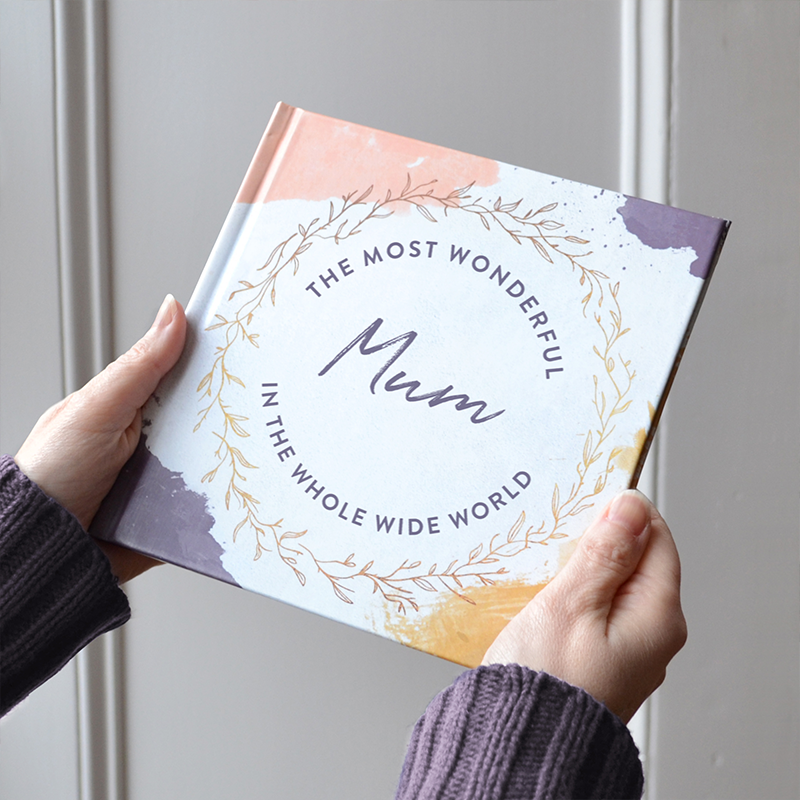 THE MOST WONDERFUL
Mum
IN THE WHOLE WIDE WORLD